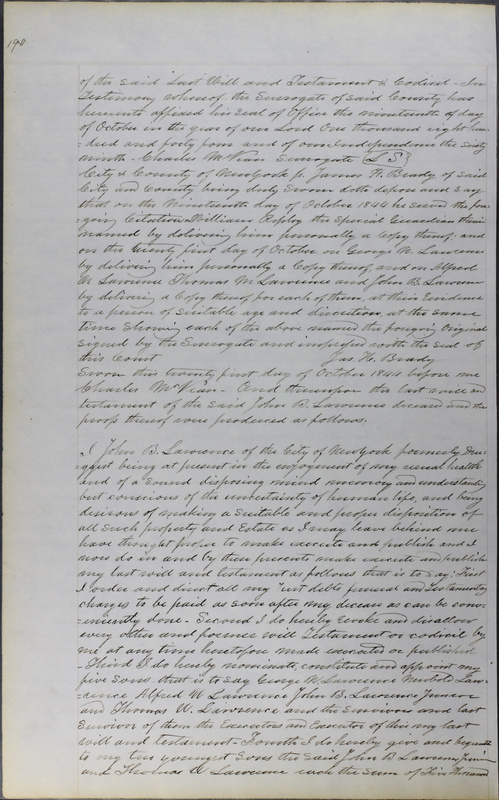 190
of the said Last Will and Testament & Codicil - In
Testimony whereof the Surrogate of said County has
hereunto affixed his seal of Office the nineteenth of day
of October in the year of our Lord One thousand eight hun=
=dred and forty four and of our Independence the Sixty
ninth - Charles McVean Surrogate (L S)
City & County of New York ss. James H. Brady of said
City and County being duly Sworn doth depose and say
that on the Nineteenth day of October 1844 he served the fore
=going Citation William Apply the Special Guardian therein
named by delivering him personally a Copy thereof, and
on the twenty first day of October on George N. Lawrence
by delivering him personally a Copy thereof, and on Alfred
N. Lawrence Thomas M Lawrence and John B. Lawrence
by delivering a Copy thereof for each of them, at their residence
to a person of suitable age and discretion, at the same
time Showing each of the above named the foregoing Original
signed by the Surrogate and impressed with the seal of
this Court Jas. H. Brady
Sworn this twenty first day of October 1844 before me
Charles McVean - And thereupon the last will and
testament of the said John B. Lawrence deceased and the
proofs thereof were produced as follows.
I John B. Lawrence of the City of New York formerly Dru
=ggist being at present in the enjoyment of my usual health
and of a sound disposing mind memory and understanding
but conscious of the uncertainty of human life, and being
desirous of making a suitable and proper disposition of
all such property and Estate as I may leave behind me
have thought proper to make execute and publish and I
now do in and by these presents make execute and publish
my last will and testament as follows that is to say: First
I order and direct all my just debts funeral and Testamentary
charges to be paid as soon after my decease as can be conv=
=eniently done - Second I do hereby revoke and disallow
every other and former will Testament or codicil by
me at any time heretofore made executed or published
- Third I do hereby nominate, constitute and appoint my
five Sons that is to say George N. Lawrence Newbold Law=
=rence Alfred N Lawrence John B. Lawrence Junior
and Thomas W. Lawrence and the Survivors and last
Survivor of them the Executors and Executor of this my last
will and testament - Fourth I do hereby give and bequeath
to my two youngest Sons the said John B Lawrence junior
and Thomas W Lawrence each the sum of Five Thousand